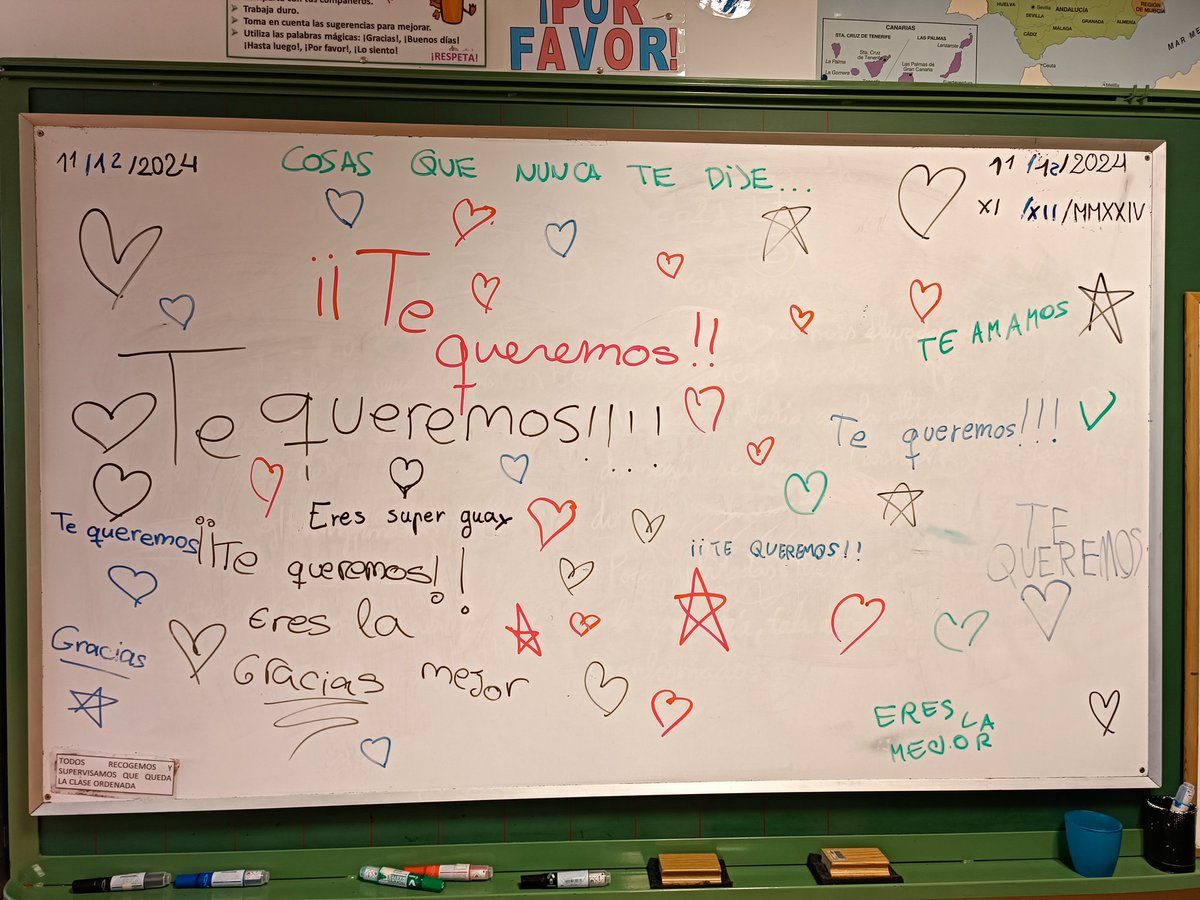 Trabaja duro.
Toma en cuenta las sugerencias para mejorar.
Utiliza las palabras mágicas: ¡Gracias!, ¡Buenos días!
¡Hasta luego!, ¡Por favor!, ¡Lo siento!
¡RESPETA!
¡POR
FAVOR!
CANARIAS
STA. CRUZ DE TENERIFE
LAS PALMAS
Lanzarote
La Palma
Sta. Cruz
de Tenerife
La Gomera
Las Palmas de
Gran Canaria
HUELVA
SEVILLA
Sevilla
ANDALUCÍA
CÁDIZ
MÁLAGA
GRANADA
ALMERÍA
REGIÓN
DE MURCIA
Ceuta
Melilla
MAR ME
11/12/2024
COSAS QUE NUNCA TE DIJE...
11/12/2024
XI /XII/MMXXIV
¡¡Te
queremos!!
TE AMAMOS
Te queremos!!!!
Te queremos!!!
Eres super guay
Te queremos
¡¡Te queremos!!
¡¡TE QUEREMOS!!
TE
QUEREMOS
Eres la
mejor
Gracias
Gracias
ERES LA
MEJOR
TODOS RECOGEMOS Y
SUPERVISAMOS QUE QUEDA
LA CLASE ORDENADA